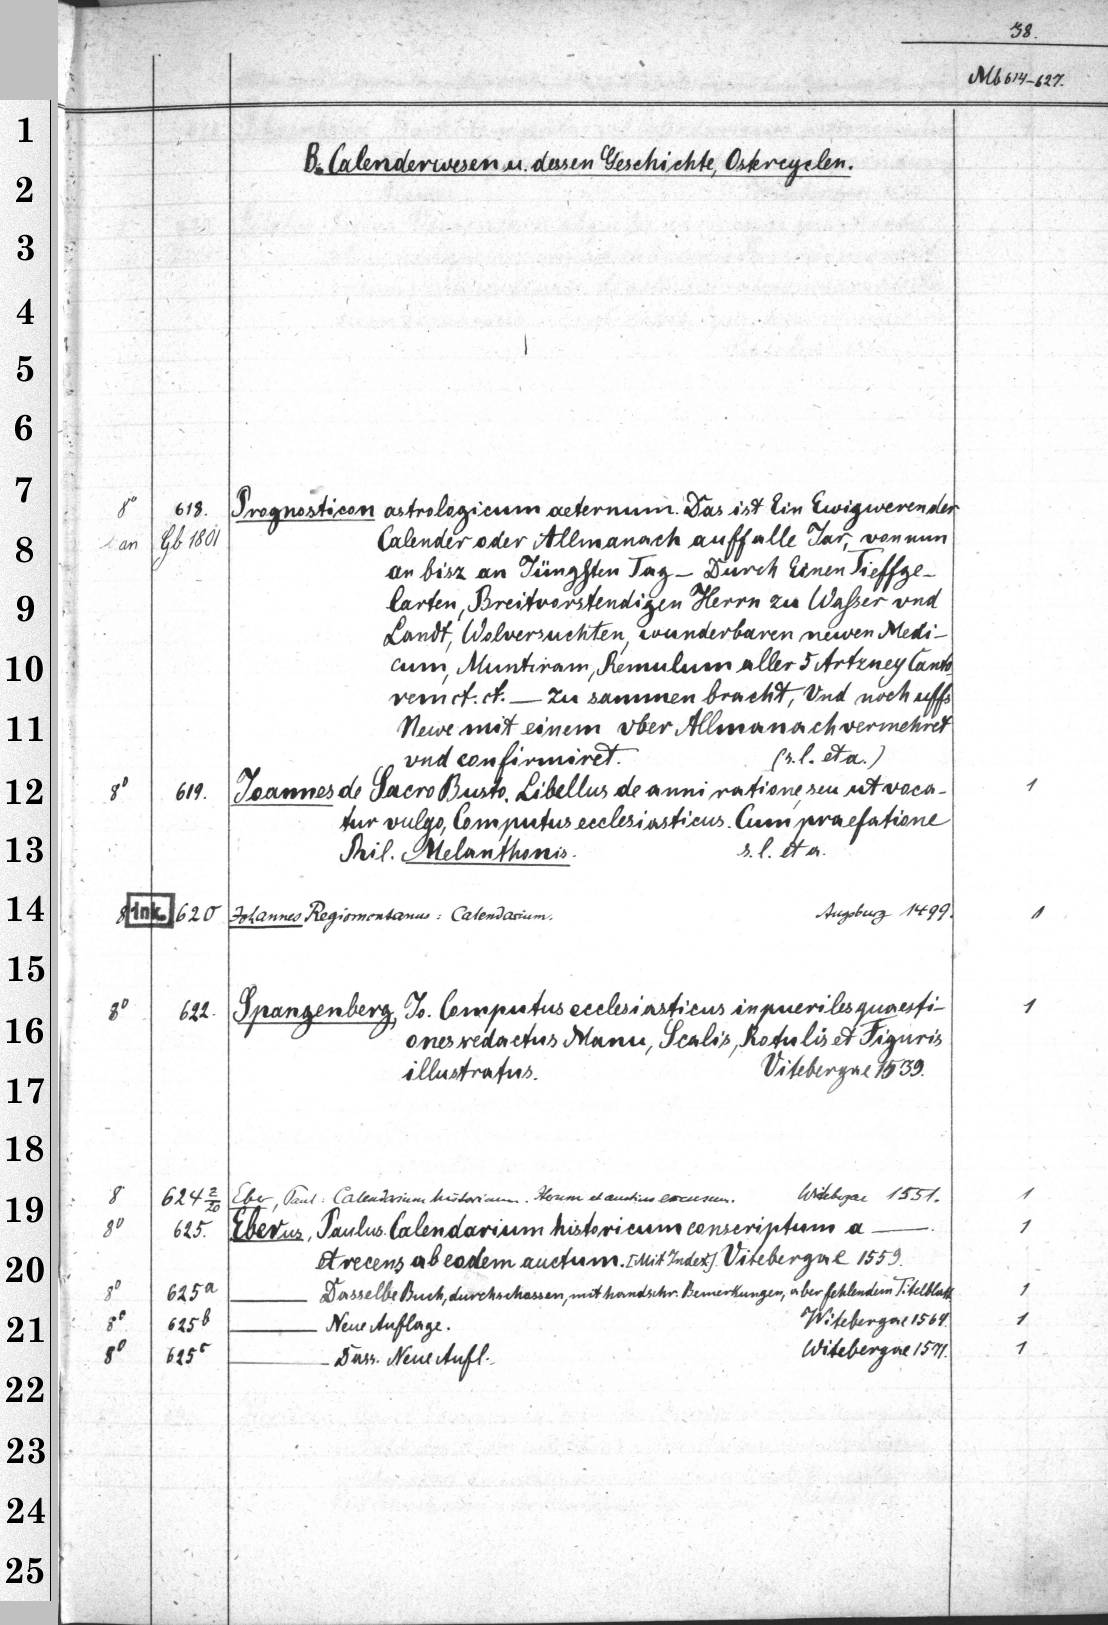 38.
Mb 614-627.
B. Calenderwesen u. dessen Geschichte, Ostercyclen.
8° 618. Prognosticon astrologicum aeternum. Das ist Ein Ewigwerender
an Gb 1801 Calender oder Allmanach auff alle Jar, von nun
an bisz an Jüngsten Tag — Durch Einen Tieffge-
larten, Breitvorstendigen Herrn zu Wasser vnd
Landt, Wolversuchten, wunderbaren newen Medi-
cum, Muntiram, Remulum aller 5 Artzney
ct. ct. — zu sammen bracht, Vnd noch uffs
Newe mit einem vber Allmanach vermehret
vnd confirmiret. (s. l. et a.)
8° 619. Joannes de Sacro Busto. Libellus de anni ratione, seu ut voca- 1
tur vulgo, Computus ecclesiasticus. Cum praefatione
Phil. Melanthonis. s. l. et a.
8 Ink. 620 Johannes Regiomontanus: Calendarium. Augsburg 1499. 1
8° 622. Spangenberg, Jo. Computus ecclesiasticus in pueriles quaesti- 1
ones redactus Manu, Scalis, Rotulis et Figuris
illustratus. Vitebergae 1539.
8 624 2/20 Eber, Paul: Calendarium historicum. Iterum et auctius excusum. Witebergae 1551. 1
8° 625. Eberus, Paulus. Calendarium historicum conscriptum a —. 1
et recens ab eodem auctum. [Mit Index]. Vitebergae 1559.
8° 625a — Dasselbe Buch, durchschossen, mit handschr. Bemerkungen, aber fehlendem Titelblatt 1
8° 625b — Neue Auflage. Witebergae 1564. 1
8° 625c — Dass. Neue Aufl. Witebergae 1571. 1
1
2
3
4
5
6
7
8
9
10
11
12
13
14
15
16
17
18
19
20
21
22
23
24
25